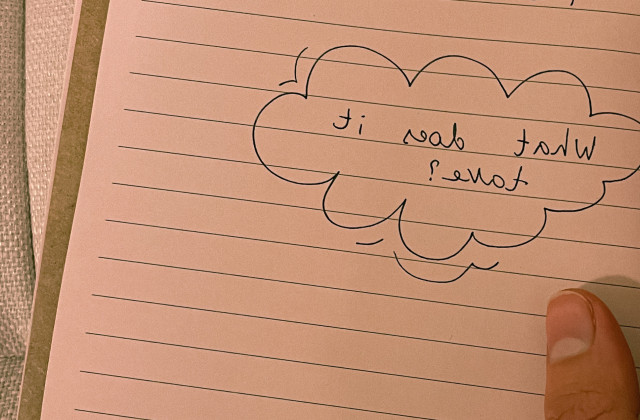 What does it
take?